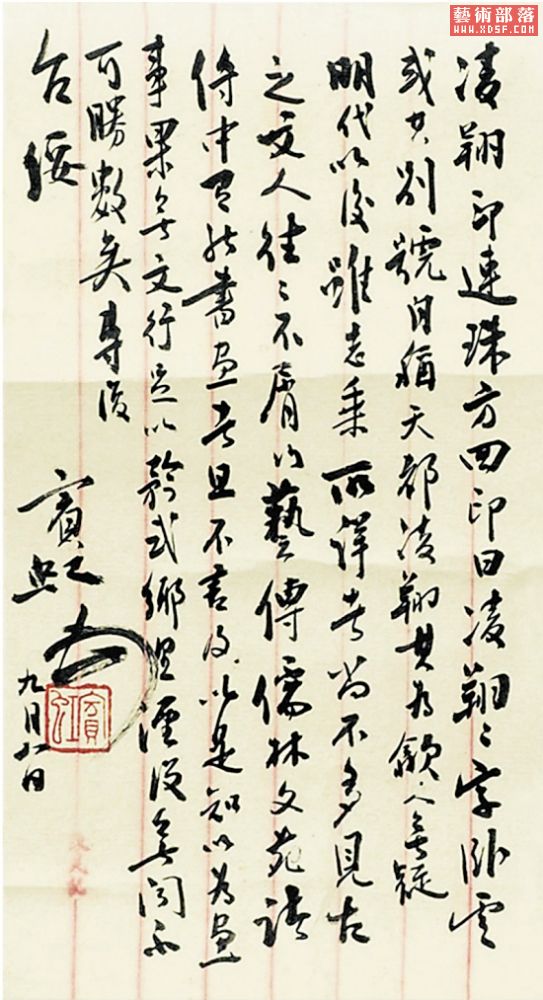 藝術部落
WWW.XDSF.COM
凌翔印連珠方四印曰凌翔〻字卧雲
或其别號自稱天都凌翔其為歙人無疑
明代以後雖志乘所詳者尚不多見古
之文人往〻不屑以藝傳儒林文苑諸
傳中有能書畫者且不言及以是知以為畫
事果無文行足以矜式鄉里湮没無聞不
可勝數矣專復
台綏
賓虹
九月日
賓虹